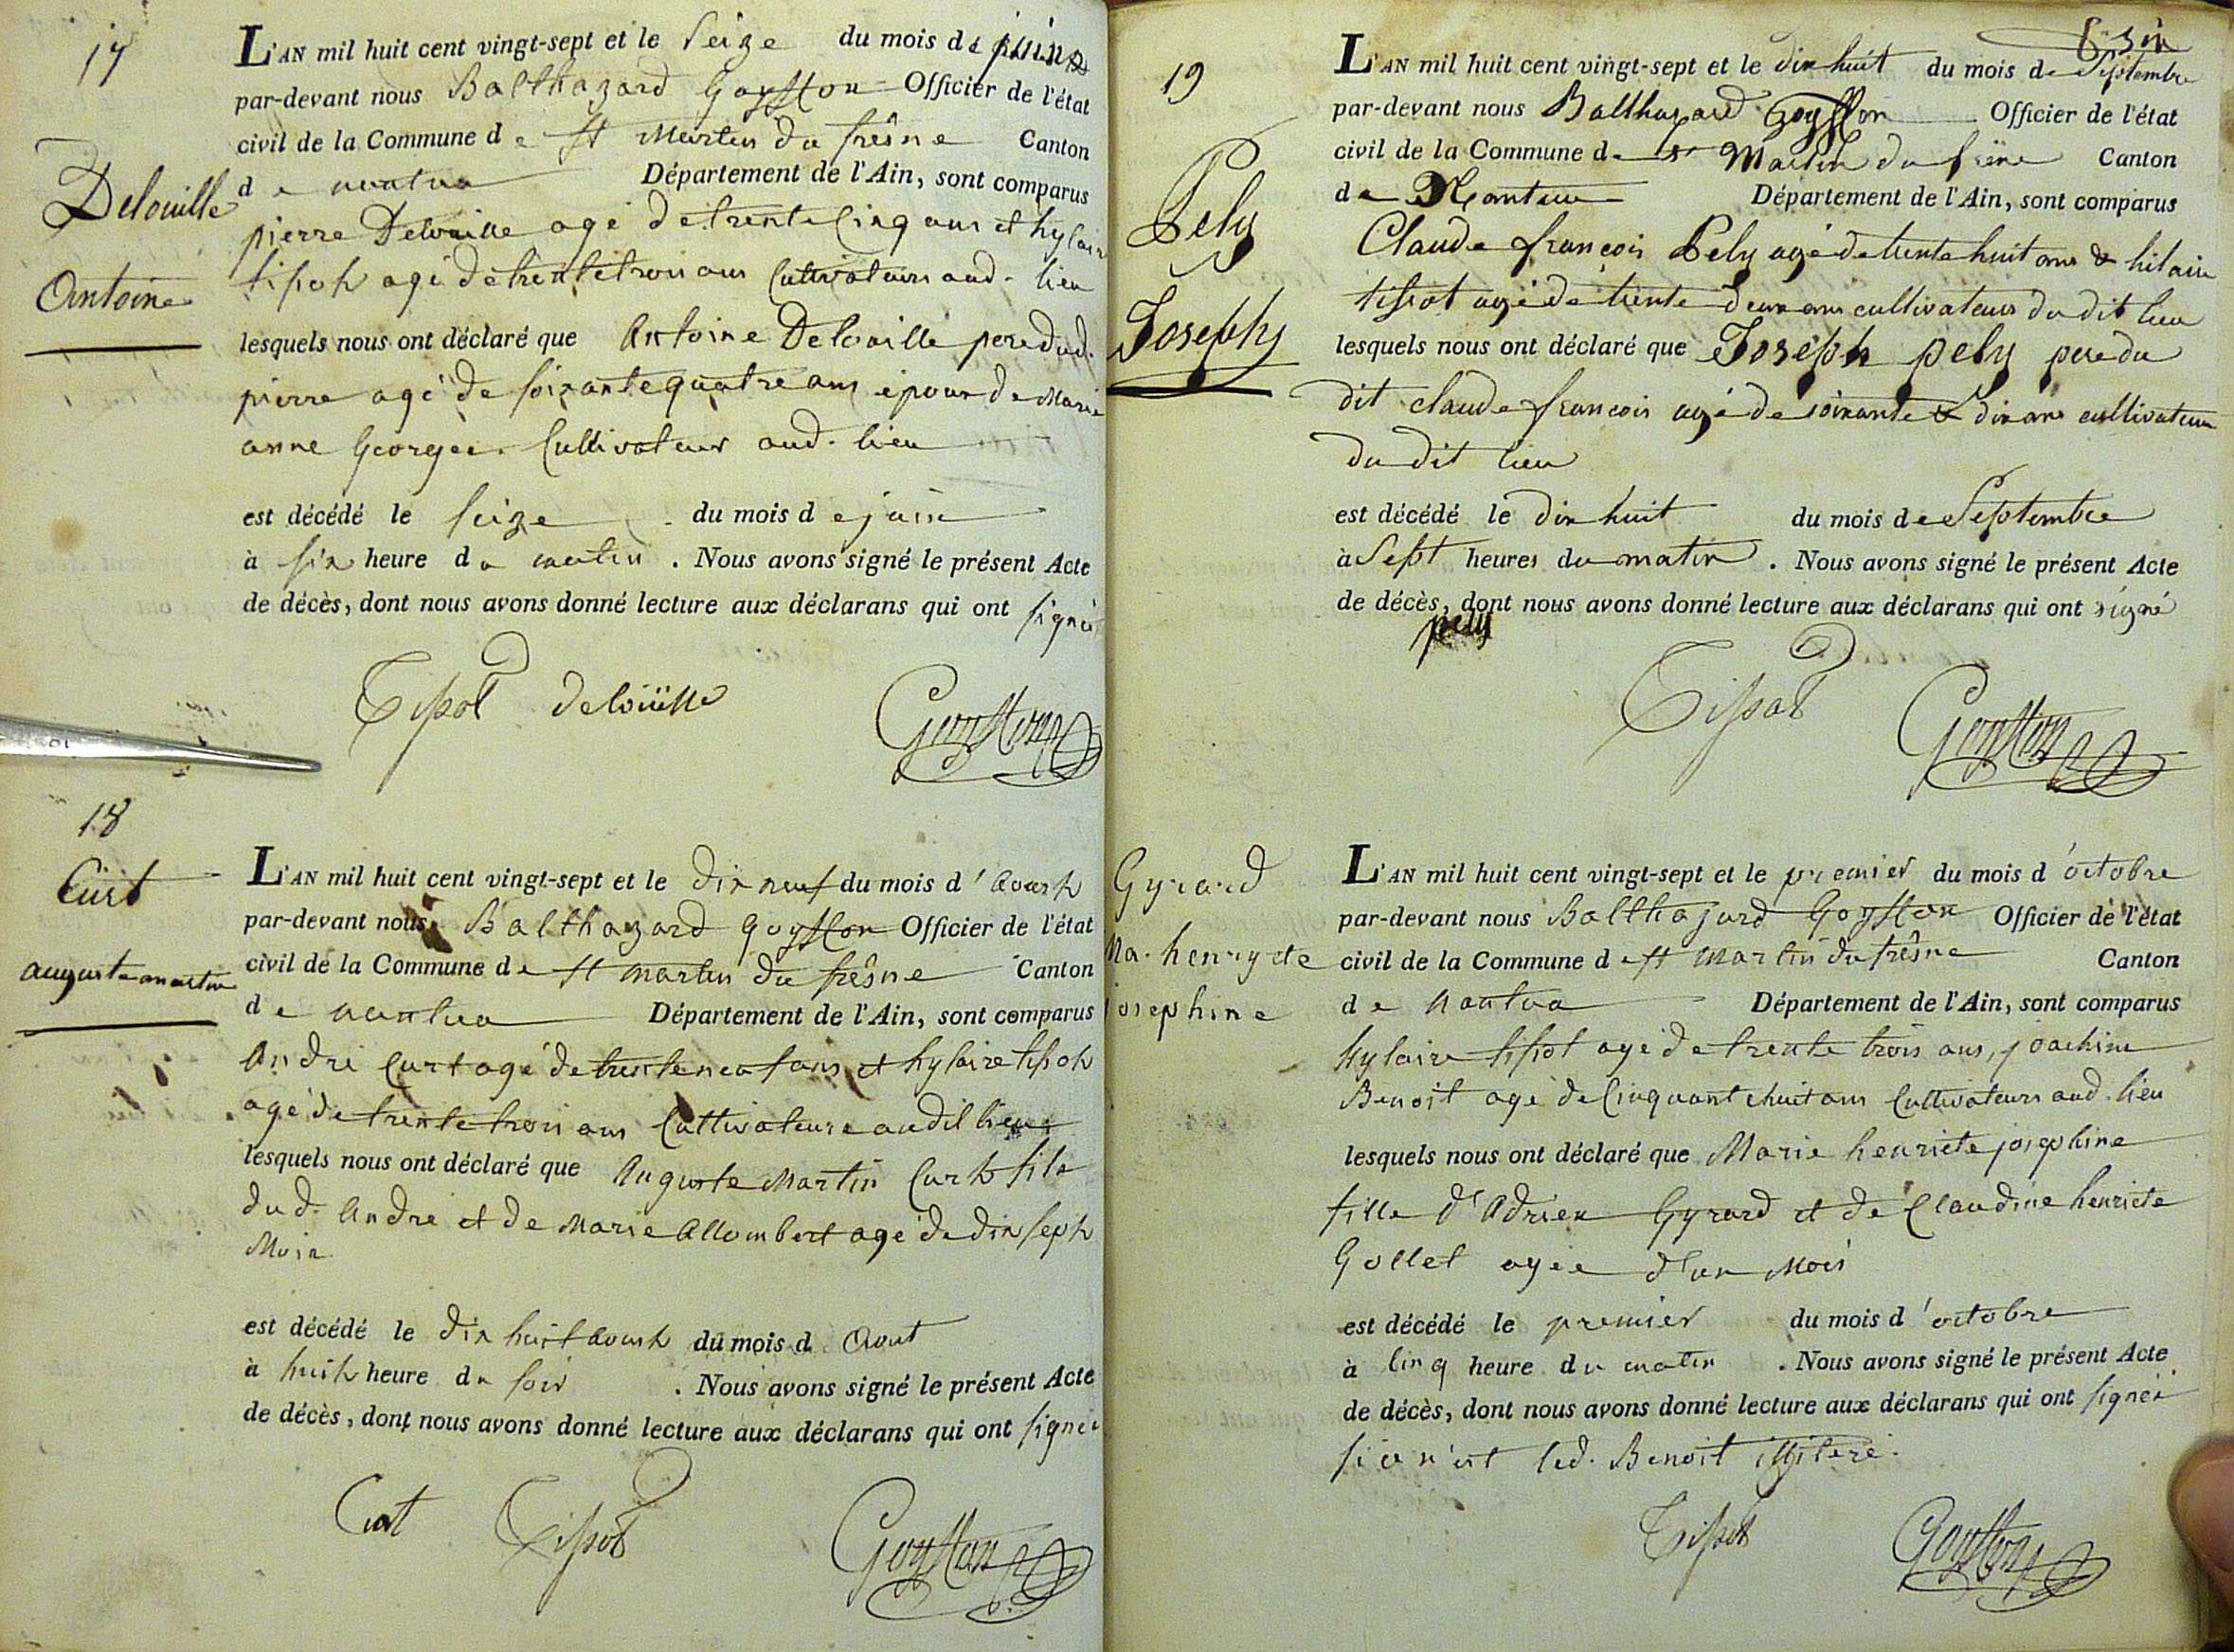 17
L'AN mil huit cent vingt-sept et le seize du mois de juin
par-devant nous Balthazard Goyffon Officier de l'état
civil de la Commune de st Martin du frêne Canton
de nantua Département de l'Ain, sont comparus
Delouille
pierre Delouille agé de trente cinq ans et hylaire
Antoine
tissot agé de trente trois ans Cultivateurs aud. lieu
lesquels nous ont déclaré que Antoine Delouille pere dud.
pierre agé de soixante quatre ans epoux de Marie
anne Georges. Cultivateur aud. lieu
est décédé le seize du mois de juin
à six heure du matin. Nous avons signé le présent Acte
de décès, dont nous avons donné lecture aux déclarans qui ont signé
Tissot delouille Goyffon
18
Curt
auguste martin
L'AN mil huit cent vingt-sept et le dix neuf du mois d'Aoust
par-devant nous Balthazard Goyffon Officier de l'état
civil de la Commune de st martin du frêne Canton
de nantua Département de l'Ain, sont comparus
André Curt agé de trente neuf ans et hylaire tissot
agé de trente trois ans Cultivateurs audit lieu
lesquels nous ont déclaré que Auguste Martin Curt fils
dud. André et de Marie Allombert agé de dix sept
Mois
est décédé le dix huit Aoust du mois d Aout
à huit heure du soir. Nous avons signé le présent Acte
de décès, dont nous avons donné lecture aux déclarans qui ont signé
Curt Tissot Goyffon
19
L'AN mil huit cent vingt-sept et le dix huit du mois de Septembre
par-devant nous Balthazard Goyffon Officier de l'état
civil de la Commune de st Martin du frêne Canton
de Nantua Département de l'Ain, sont comparus
Pely
Claude françois Pely agé de trente huit ans & hilaire
tissot agé de trente deux ans cultivateurs du dit lieu
Joseph
lesquels nous ont déclaré que Joseph pely pere du
dit claude françois agé de soixante & dix ans cultivateur
du dit lieu
est décédé le dix huit du mois de Septembre
à Sept heures du matin. Nous avons signé le présent Acte
de décès, dont nous avons donné lecture aux déclarans qui ont signé
pely
Tissot Goyffon
Gyrard
Ma. henryete
josephine
L'AN mil huit cent vingt-sept et le premier du mois d'octobre
par-devant nous Balthazard Goyffon Officier de l'état
civil de la Commune de st Martin du frêne Canton
de Nantua Département de l'Ain, sont comparus
hylaire tissot agé de trente trois ans, joachim
Benoit agé de Cinquante huit ans Cultivateurs aud. lieu
lesquels nous ont déclaré que Marie henriete josephine
fille d'Adrien Gyrard et de Claudine henriete
Gollet agée d'un Mois
est décédé le premier du mois d'octobre
à cinq heure du matin. Nous avons signé le présent Acte
de décès, dont nous avons donné lecture aux déclarans qui ont signé
si ce n'est led. Benoit illiteré.
Tissot Goyffon